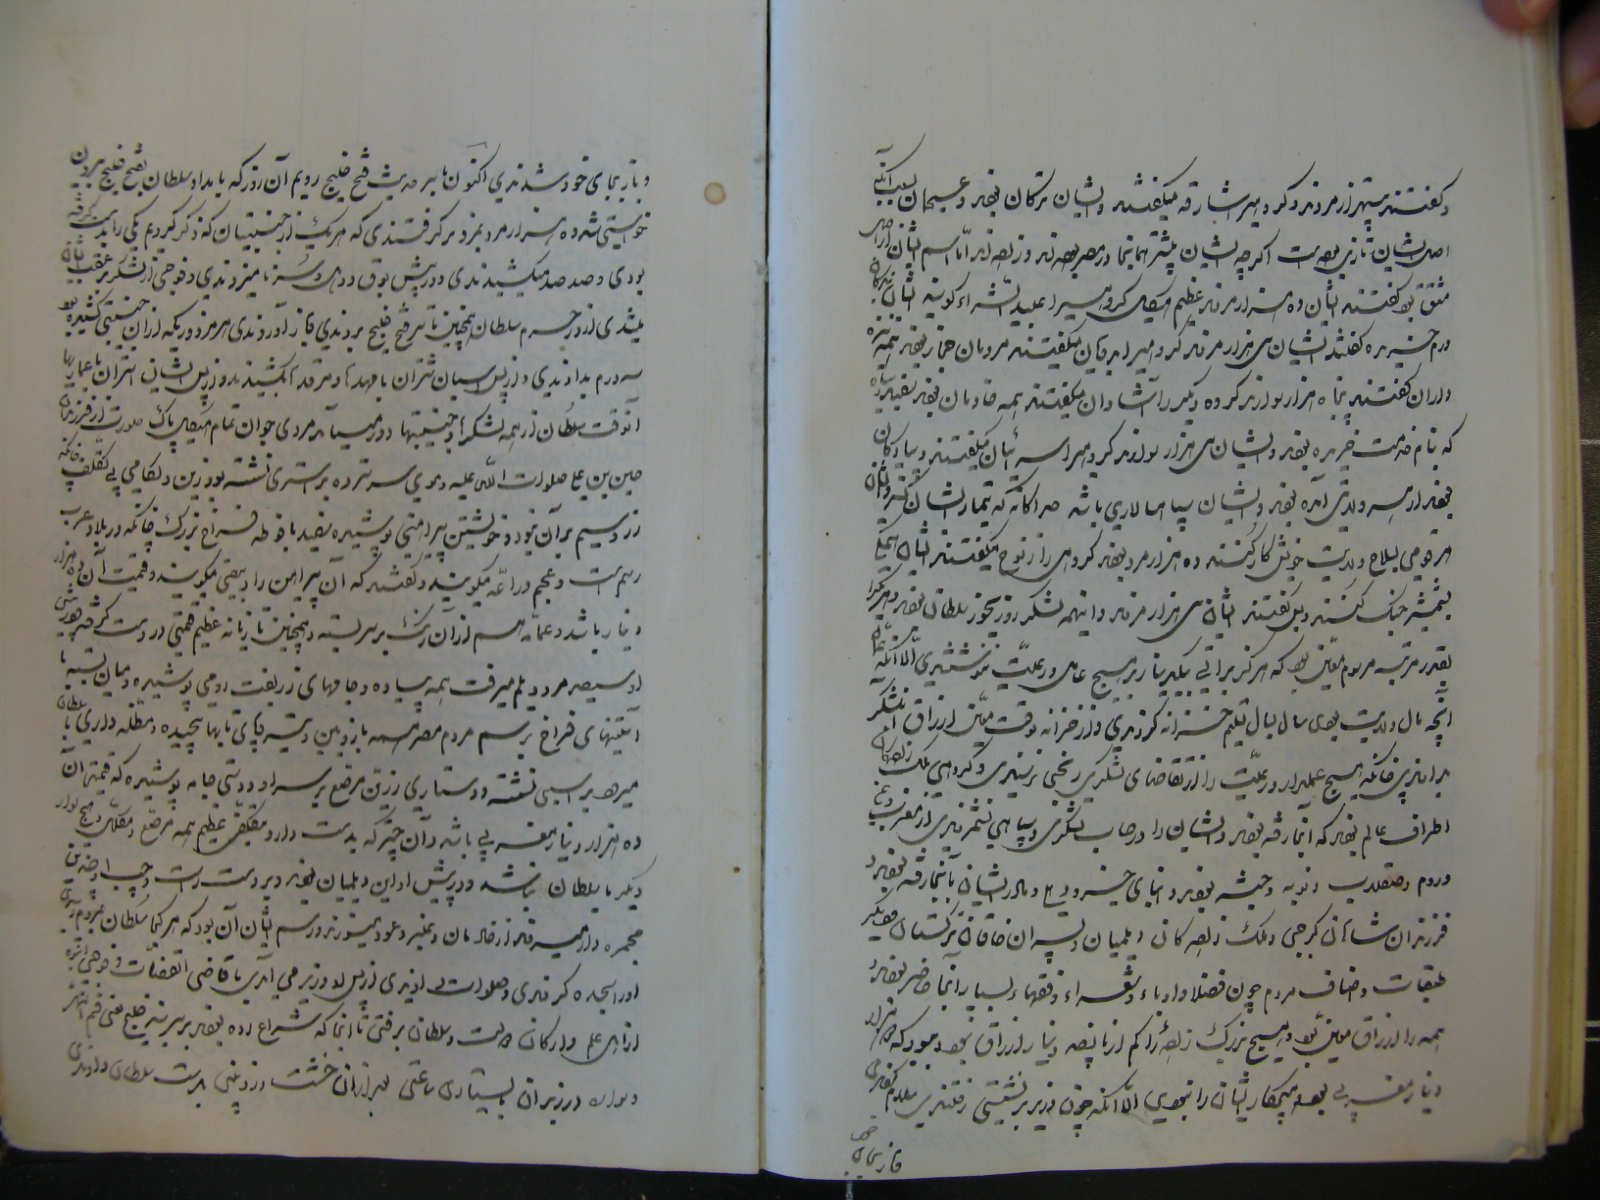 و گفتند بیست هزار مردند و گروهی را مشارقه میگفتند و ایشان ترکان بودند و عجمیان سبب آنکه
اصل ایشان تازی نبوده است اگرچه ایشان بیشتر همانجا در مصر بوده‌اند و زاده‌اند اما اسم ایشان از اصل
مشتق بود گفتند ایشان ده هزار مردند عظیم هیکل گروهی را عبید الشراء گویند ایشان بندگان
درم خریده گفتند ایشان سی هزار مردند گروهی را بدویان میگفتند مردمان حجاز بودند همه نیزه
داران گفتند پنجاه هزار سوارند گروه دیگر را استادان میگفتند همه خادمان بودند سفید و سیاه
که بنام خدمت خریده بودند و ایشان سی هزار سوارند گروهی را سرائیان میگفتند پیادگان
بودند از هر ولایتی آمده بودند و ایشان سپاه سالاری باشد جداگانه که تیمار ایشان کند و ایشان
هر قومی بسلاح ولایت خویش کار کنند ده هزار مرد بودند گروهی را زنوج میگفتند ایشان همه
بشمشیر جنگ کنند و بس گفتند ایشان سی هزار مردند و اینهمه لشکر روزی‌خور سلطان بودند و هر یک را
بقدر مرتبه مرسوم معین بود که هرگز براتی بیکدینار بر هیچ عامل و رعیت ننوشتندی الا آنکه
آنچه مال ولایت بودی سال بسال تسلیم خزانه کردندی و از خزانه بوقت معین ارزاق آن لشکر
بدادندی چنانکه هیچ عملدار و رعیت را از تقاضای لشکری رنجی نرسیدی و گروهی ملک زادگان
اطراف عالم بودند که آنجا رفته بودند و ایشان را در حساب لشکری و سپاهی نشمردندی از مغرب و یمن
و روم و صقلاب و نوبه و حبشه بودند و ابنای خسرو دهلی و مادر ایشان بآنجا رفته بودند و
فرزندان شاهان گرجی و ملک زادگان دیلمیان و پسران خاقان ترکستان و دیگر
طبقات و اصناف مردم چون فضلا و ادباء و شعراء و فقهاء بسیار آنجا حاضر بودند و
همه را ارزاق معین بود و هیچ بزرگ زاده را کم از پانصد دینار ارزاق نبود و بود که دو هزار
دینار مغربی بود و هیچکار ایشان را نبودی الا آنکه چون وزیر بر نشستی رفتندی و سلام کردندی
و باز بجای خود شدندی اکنون با سر حدیث فتح خلیج رویم آن روز که بامداد سلطان بفتح خلیج بیرون
خواستی شد ده هزار مرد بمزد بر گرفتندی که هر یک از جنیبتیان که ذکر کردیم یکی را بدست گرفته
بودی و صد صد میکشیدندی و در پیش بوق و دهل و سرنا میزدندی و فوجی از لشکر بر عقب ایشان
میشدی از در حرم سلطان همچنین تا سر فتح خلیج بردندی و باز آوردندی هر مزدوریکه از آن جنیبتی کشیده بود
سه درم بدادندی و از پس اسبان شتران با مهدها و مرقدها بکشیدند و از پس ایشان استران با عماریها
آنوقت سلطان از همه لشکرها و جنیبتها دور میآمد مردی جوان تمام هیکل پاک صورت از فرزندان
حسین بن علی صلوات الله علیه و موی سر سترده بر استری نشسته بود زین و لگامی بی تکلف چنانکه
زر و سیم بر آن نبود و خویشتن پیراهنی پوشیده سفید با فوطه فراخ بزرگ چنانکه در بلاد عرب
رسم است و بعجم دراعه میگویند و گفتند که آن پیراهن را دبیقی میگویند و قیمت آن ده هزار
دینار باشد و عمامه هم از آن رنگ بر سر بسته و همچنین تازیانه عظیم قیمتی در دست گرفته و در پیش
او سیصد مرد دیلم میرفت همه پیاده و جامهای زربفت رومی پوشیده و میان بسته با
آستینهای فراخ برسم مردم مصر همه با زوبین و تیر و پای تابها پیچیده و مظله داری با سلطان
میرود بر اسبی نشسته و دستاری زرین مرصع بر سر او و دستی جامه پوشیده که قیمت آن
ده هزار دینار مغربی باشد و آن چتر که بدست دارد بتکلفی عظیم همه مرصع و مکلل و هیچ سوار
دیگر با سلطان نباشد و در پیش او این دیلمیان بودند و بر دست راست و چپ او چندین
مجمره دار میرفتند از خادمان و عنبر و عود میسوزند و رسم ایشان آن بود که هر کجا سلطان بمردم رسیدی
او را سجده کردندی و صلوات دادندی از پس او وزیر می‌آمدی با قاضی القضات و فوجی انبوه
از اهل علم و ارکان دولت و سلطان برفتی تا آنجا که شراع زده بودند بر سر بند خلیج یعنی فم النهر
و سواره در زیر آن بایستادی ساعتی بعد از آن خشت زوبینی بدست سلطان دادندی